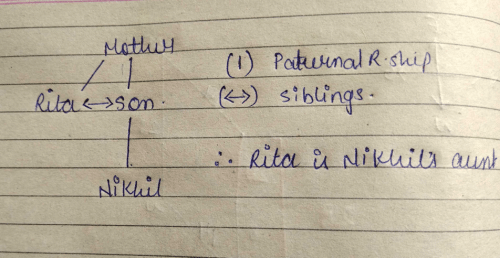 Mother
(1) Paturnal R.ship
Rita ↔ son.
(↔) siblings.
∴ Rita is Nikhil's aunt
Nikhil